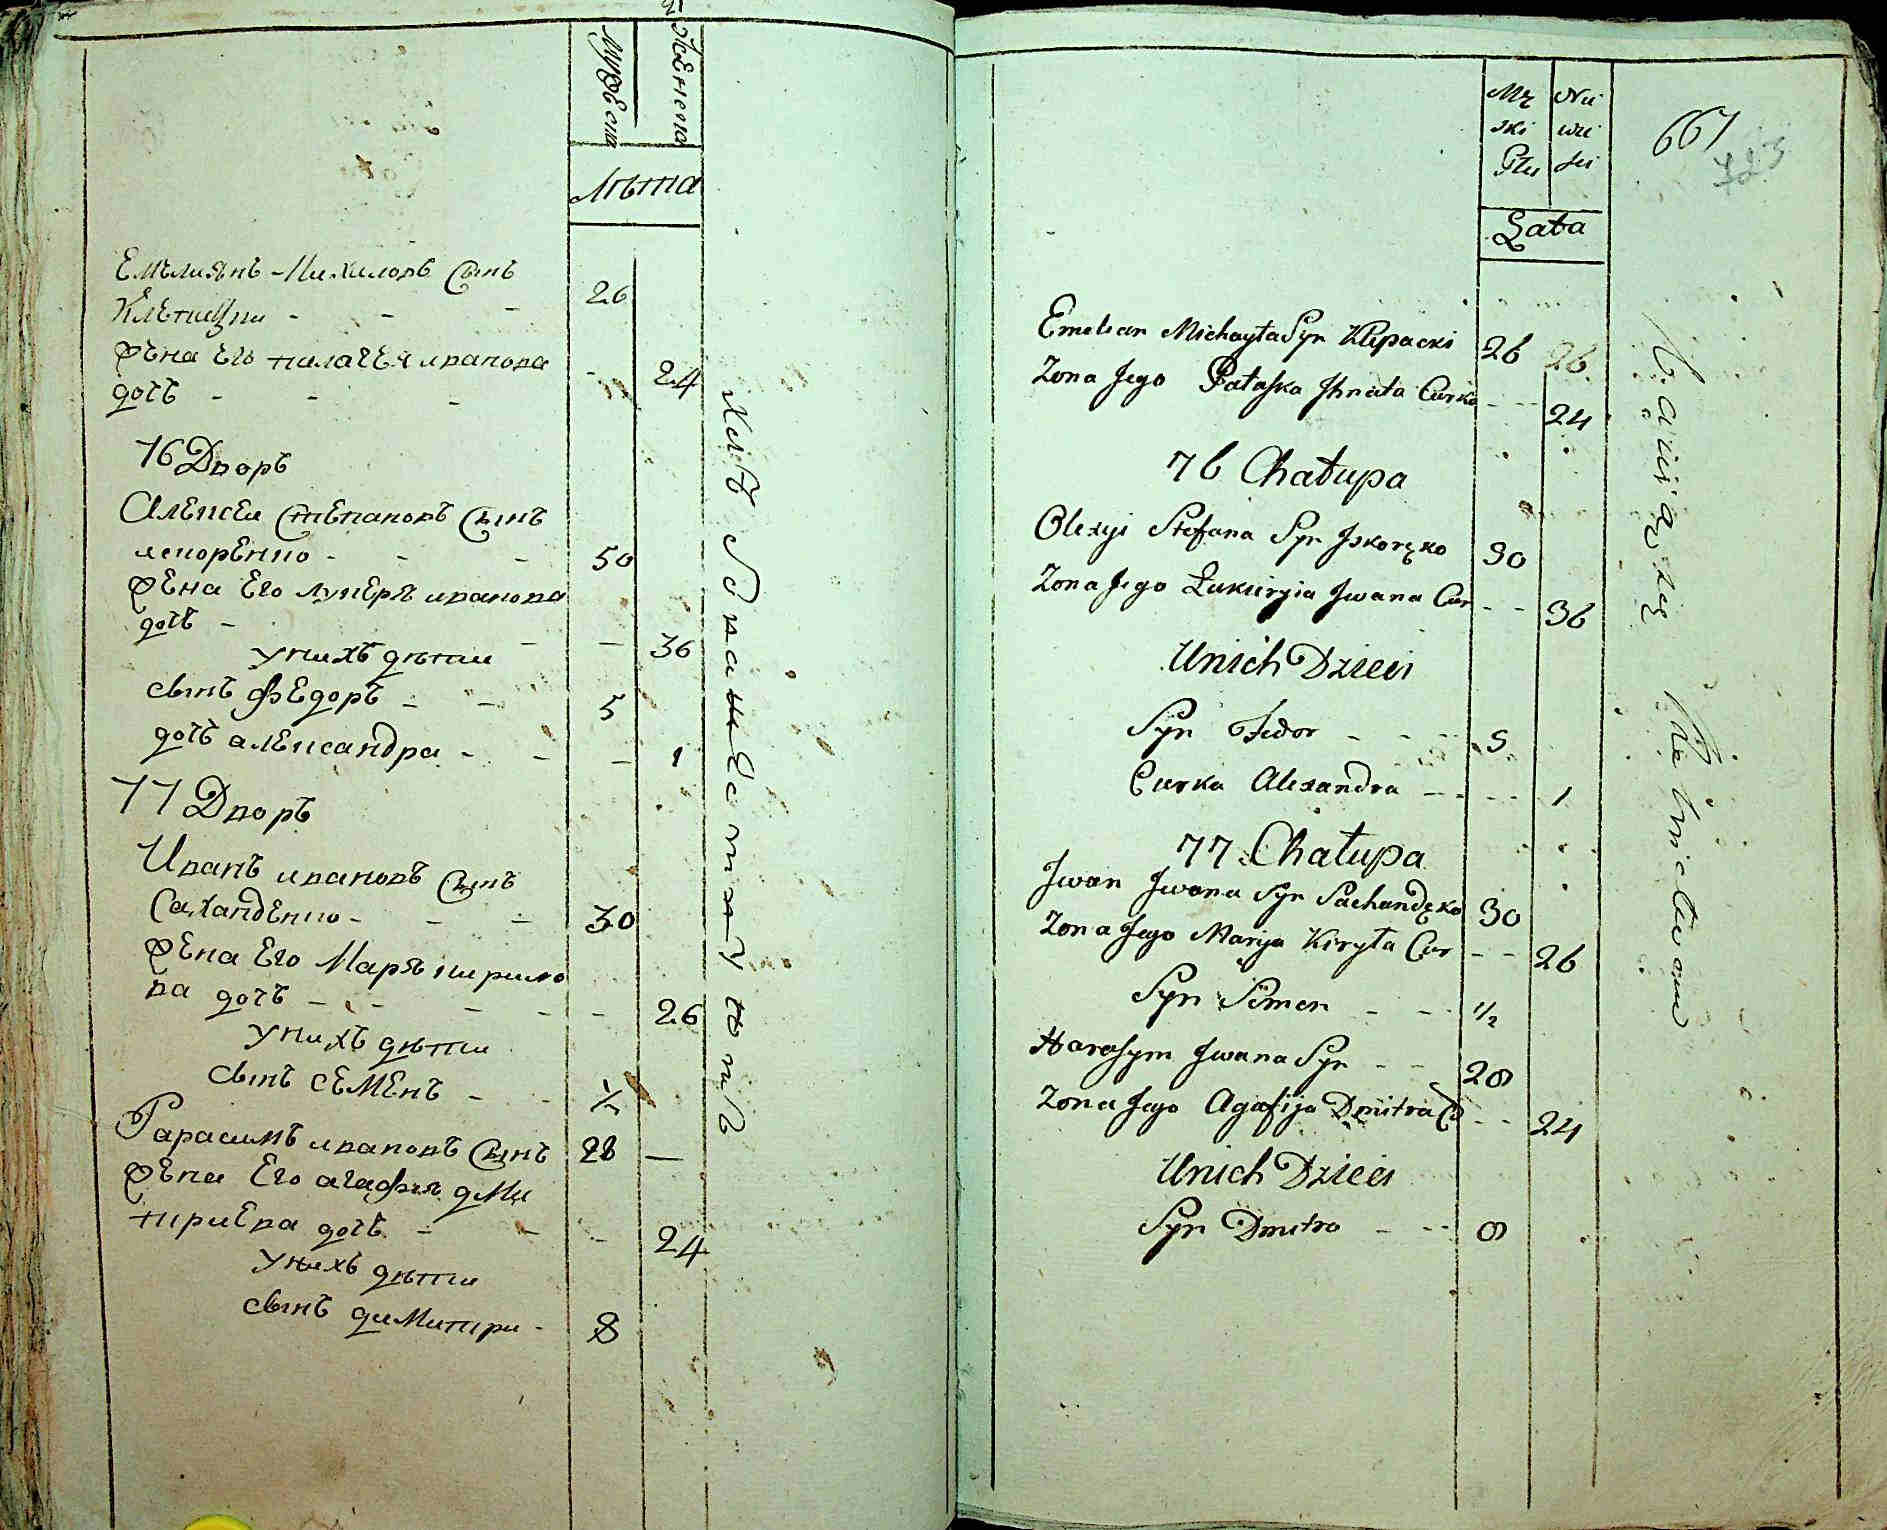 Мужеска
Женска
Лѣта
Емелиянъ Михиловъ Сынъ
26
жена Его
иванова
дочь - - - 24
76 Дворъ
Алексеи Степановъ Сынъ
искоренко - - - 50
жена Его лукеря иванова
дочь - - - 36
у нихъ дѣти
сынъ Федоръ - - 5
дочь александра - - - 1
77 Дворъ
Иванъ ивановъ Сынъ
Саханденко - - - 30
жена Его Маря кирило
ва дочь - - - - - 26
у нихъ дѣти
сынъ семенъ - - ½
Гарасимъ ивановъ Сынъ 28 —
жена Его агафия дми
триева дочь - - - 24
у нихъ дѣти
сынъ димитри - 8
Mę Nie
ski wie
Płci sci
667
723
Lata
Emelian Michayła Syn Klepacki 26 26
Zona Jego Pałaska Ihnata Curka - - 24
76 Chałupa
Olexyi Stefana Syn Jskoręko 30
Zona Jego Łukiryia Jwana Cur - - 36
Unich Dzieci
Syn Fedor - - - 5
Curka Alexandra - - - - 1
77 Chałupa
Jwan Jwana Syn Sachandęko 30
Zona Jego Marya Kiryła Cur - - 26
Syn Simen - - - ½
Harasym Jwana Syn - - 28
Zona Jego Agafija Dmitra C - - 24
Unich Dzieci
Syn Dmitro - - - 8